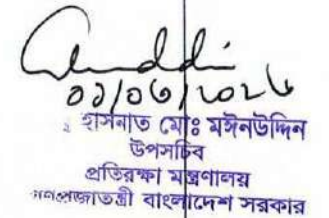 ০১/০৩/২০২৬
হাসনাত মোঃ মঈনউদ্দিন
উপসচিব
প্রতিরক্ষা মন্ত্রণালয়
গণপ্রজাতন্ত্রী বাংলাদেশ সরকার